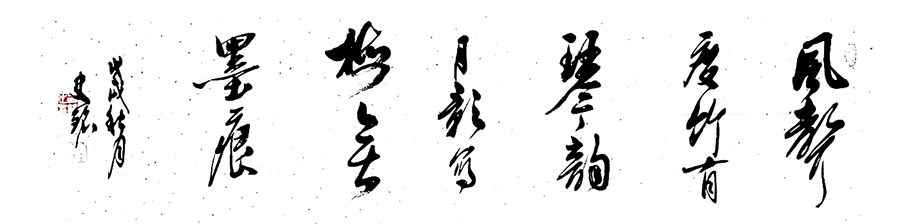 風聲
度竹有
琴韻
月影寫
梅無
墨痕
歲秋月